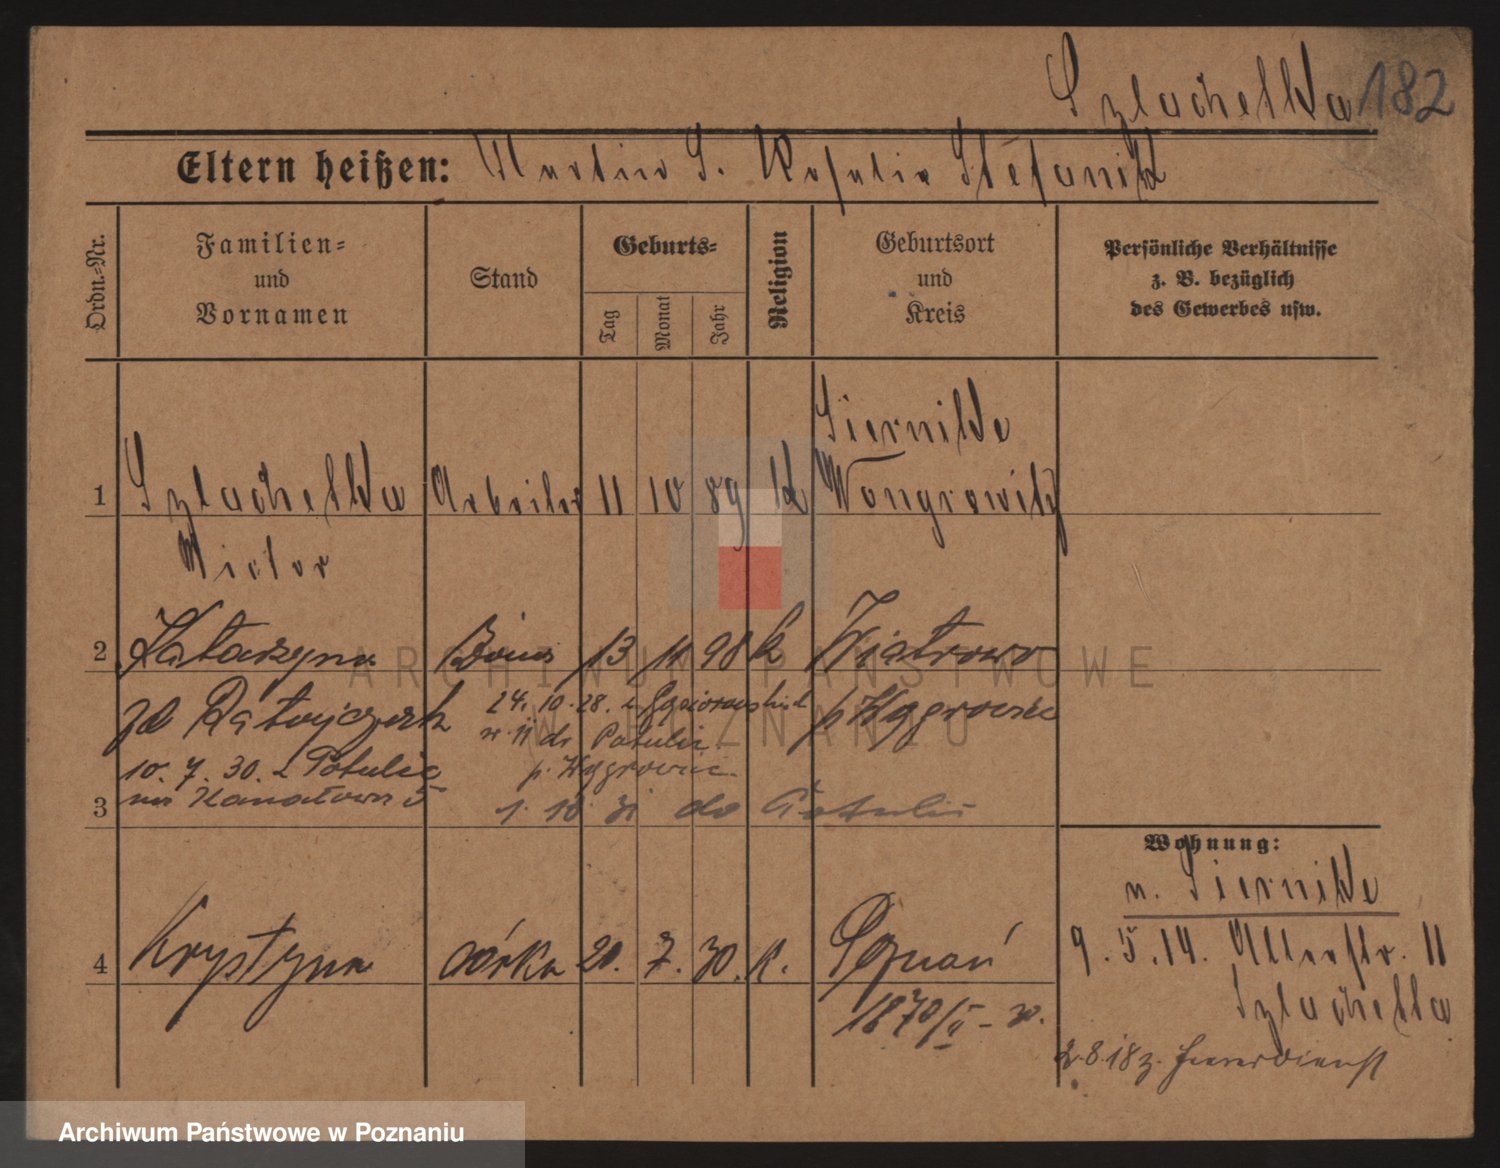 Szlachetka 182
Eltern heißen: Martin S. Rosalie Stefanik
Ordn.-Nr.
Familien-
und
Vornamen
Stand
Geburts-
Tag
Monat
Jahr
Religion
Geburtsort
und
Kreis
Persönliche Verhältnisse
z. B. bezüglich
des Gewerbes usw.
Siernike
1 Szlachetka Arbeiter 11 10 89 k Wongrowitz
Victor
2 Katarzyna 13 11 98 k Wiatrowo
zd Ratajczak p Wągrowiec
24. 10. 28. z
do Potulic
p. Wągrowiec
10. 7. 30. z Potulic
3
1. 10. 31 do Potulic
Wohnung:
n. Siernike
9. 5. 14. 11
Szlachetka
2. 8. 18 z. Heeresdienst
4 Krystyna córka 20. 7. 30. k. Poznań
1870/II - 30.
ARCHIWUM PAŃSTWOWE
W POZNANIU
Archiwum Państwowe w Poznaniu